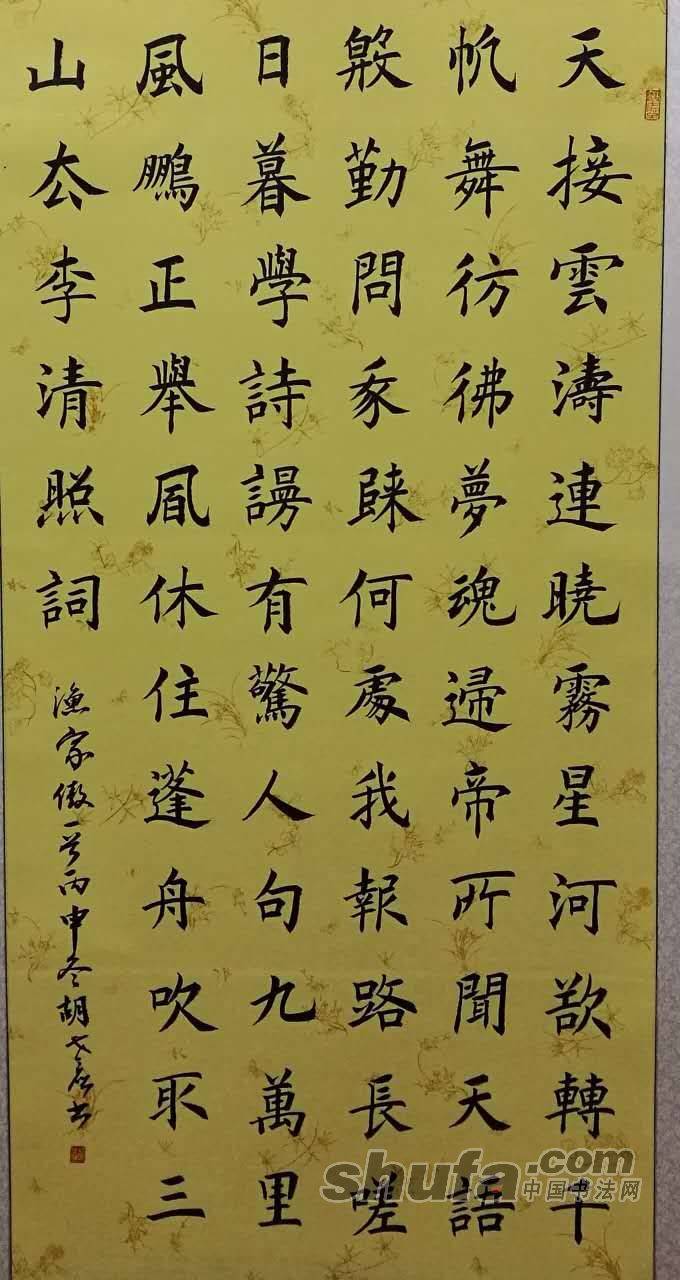 天接雲濤連曉霧星河欲轉千
帆舞彷彿夢魂歸帝所聞天語
殷勤問我歸何處我報路長嗟
日暮學詩謾有驚人句九萬里
風鵬正舉風休住蓬舟吹取三
山去李清照詞
漁家傲一首丙申冬胡書
shufa.com
中国书法网